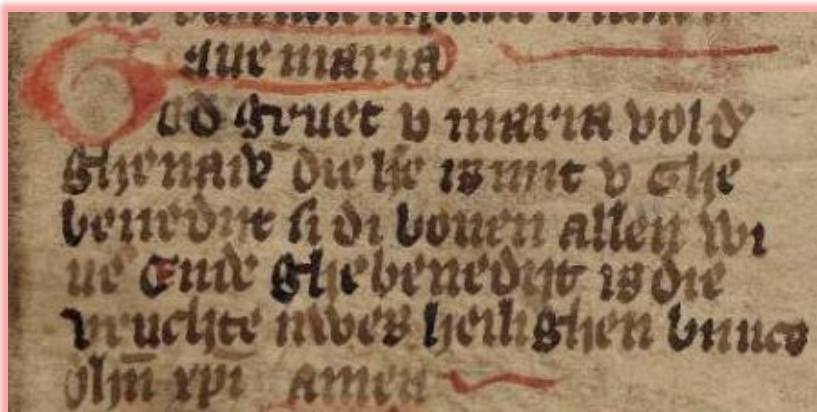 aue maria
God gruet v maria vol d̕
ghenadē die h̕e is mit v Ghe
benedijt si di bouen allen wi
ue Ende ghebenedijt is die
vruchte uwes heilighen buucs
ihū xp̄i amen